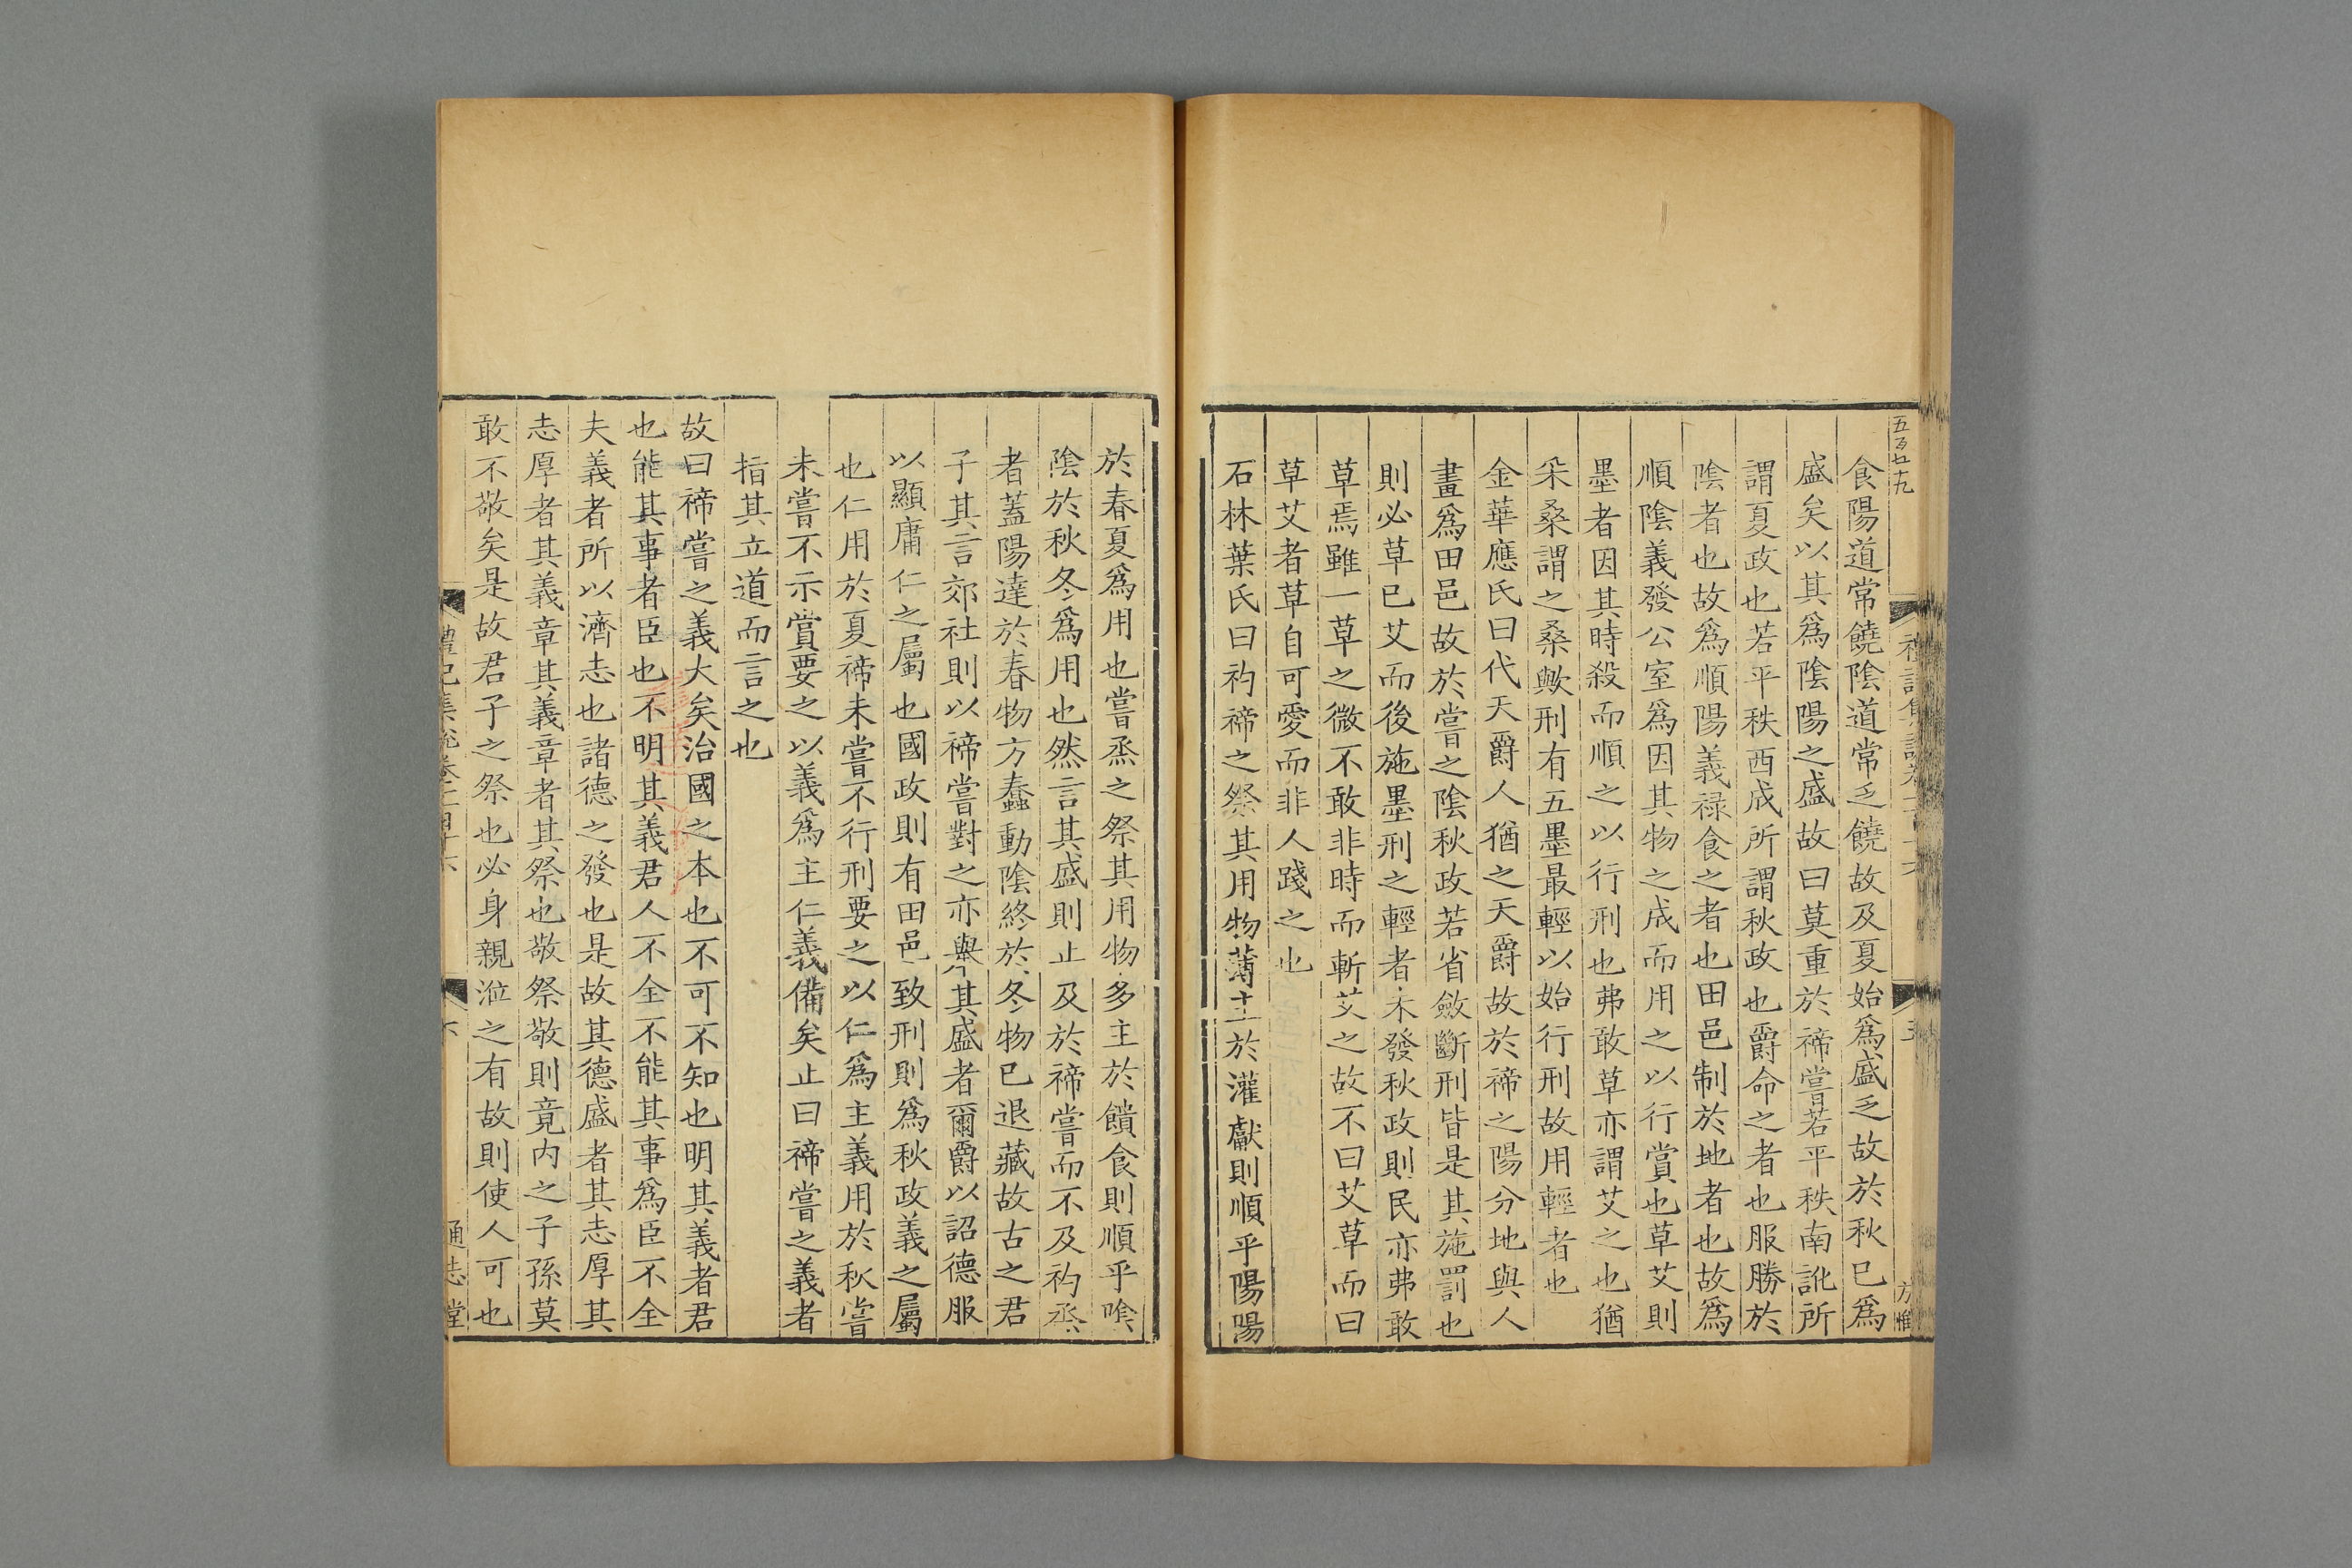 食陽道常饒陰道常乏饒故及夏始爲盛乏故於秋已爲
盛矣以其爲陰陽之盛故曰莫重於禘嘗若平秩南訛所
謂夏政也若平秩西成所謂秋政也爵命之者也服勝於
陰者也故爲順陽義祿食之者也田邑制於地者也故爲
順陰義發公室爲因其物之成而用之以行賞也草艾則
墨者因其時殺而順之以行刑也弗敢草亦謂艾之也猶
采桑謂之桑歟刑有五墨最輕以始行刑故用輕者也
金華應氏曰代天爵人猶之天爵故於禘之陽分地與人
畫爲田邑故於嘗之陰秋政若省斂斷刑皆是其施罰也
則必草已艾而後施墨刑之輕者未發秋政則民亦弗敢
草焉雖一草之微不敢非時而斬艾之故不曰艾草而曰
草艾者草自可愛而非人踐之也
石林葉氏曰礿禘之祭其用物薄主於灌獻則順乎陽陽
於春夏爲用也嘗烝之祭其用物多主於饋食則順乎陰
陰於秋冬爲用也然言其盛則止及於禘嘗而不及礿烝
者蓋陽達於春物方蠢動陰終於冬物已退藏故古之君
子其言郊社則以禘嘗對之亦舉其盛者爾爵以詔德服
以顯庸仁之屬也國政則有田邑致刑則爲秋政義之屬
也仁用於夏禘未嘗不行刑要之以仁爲主義用於秋嘗
未嘗不示賞要之以義爲主仁義備矣止曰禘嘗之義者
指其立道而言之也
故曰禘嘗之義大矣治國之本也不可不知也明其義者君
也能其事者臣也不明其義君人不全不能其事爲臣不全
夫義者所以濟志也諸德之發也是故其德盛者其志厚其
志厚者其義章其義章者其祭也敬祭敬則竟内之子孫莫
敢不敬矣是故君子之祭也必身親涖之有故則使人可也
通志堂